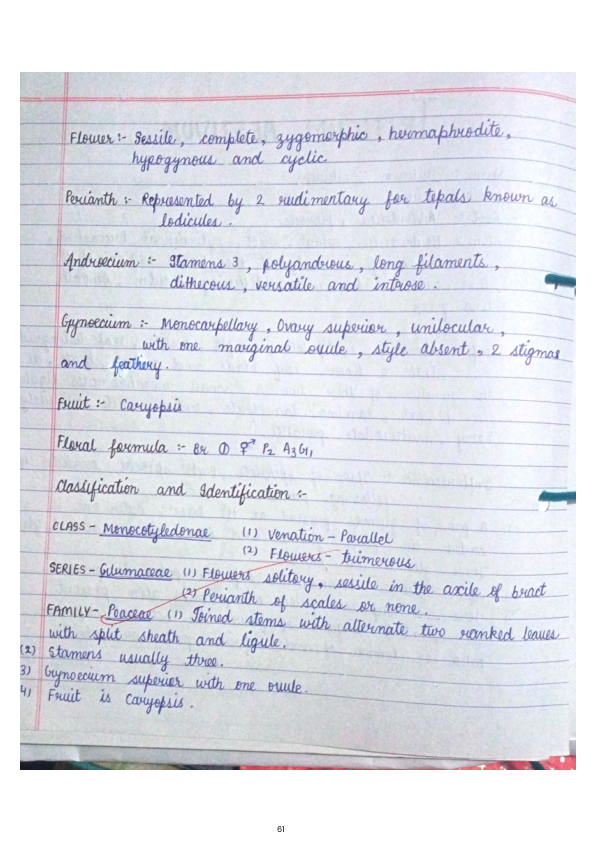 Flower :- Sessile, complete, zygomorphic, hermaphrodite,
hypogynous and cyclic
Perianth :- Represented by 2 rudimentary for tepals known as
lodicules.
Androecium :- Stamens 3, polyandrous, long filaments,
dithecous, versatile and introse.
Gynoecium :- Monocarpellary, Ovary superior, unilocular,
with one marginal ovule, style absent, 2 stigmas
and feathery.
Fruit :- Caryopsis
Floral formula :- Br ⦶ ⚥ P2 A3 G1,
Classification and Identification :-
CLASS - Monocotyledonae (1) Venation - Parallel
(2) Flowers - trimerous
SERIES - Glumaceae (1) Flowers solitory, sessile in the axile of bract
(2) Perianth of scales or none.
FAMILY - Poaceae (1) Joined stems with alternate two ranked leaves
with split sheath and ligule.
(2) Stamens usually three.
3) Gynoecium superior with one ovule.
4) Fruit is Caryopsis.
61